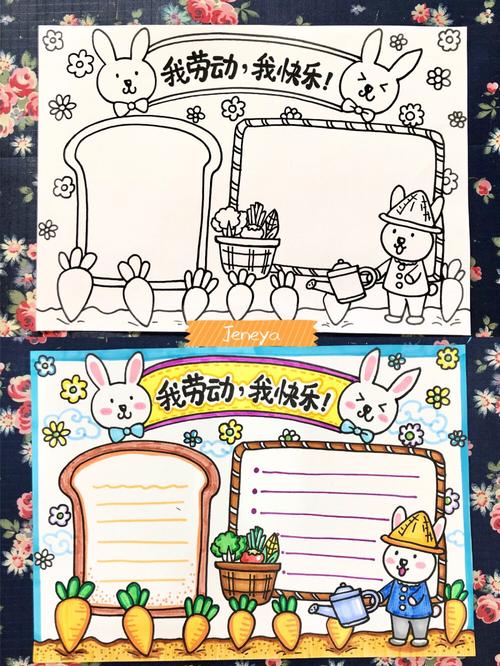 我劳动，我快乐！
Jeneya
我劳动，我快乐！